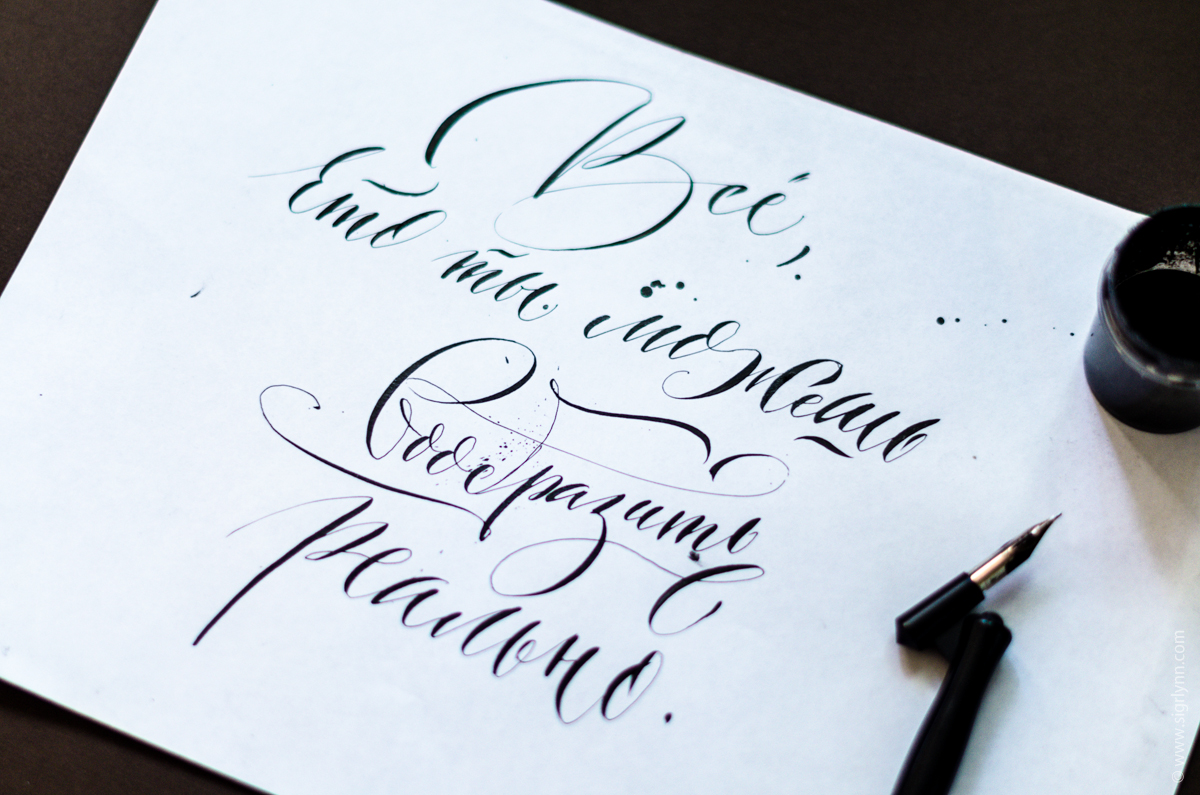 Всё,
Что ты можешь
вообразить
реально.
© www.sigrlynn.com